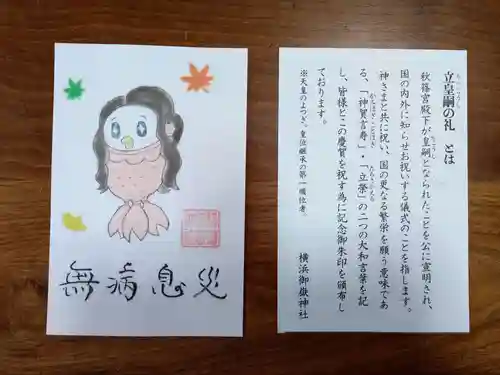 無病息災
立皇嗣の礼 とは
秋篠宮殿下が皇嗣となられたことを公に宣明され、
国の内外に知らせお祝いする儀式のことを指します。
神さまと共に祝い、国の更なる繁栄を願う意味であ
る、「神賀言寿」・「立榮」の二つの大和言葉を記
し、皆様とこの慶賀を祝す為に記念御朱印を頒布し
ております。
※天皇のよつぎ。皇位継承の第一順位者。
横浜御嶽神社